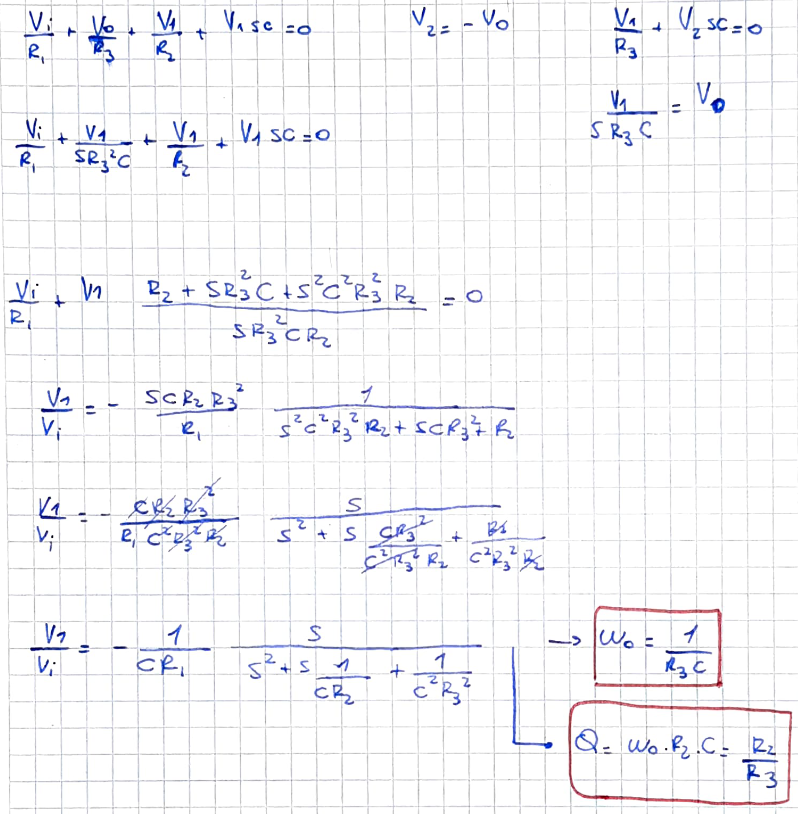 Vi/R₁ + V₀/R₃ + V₁/R₂ + V₁ SC = 0    V₂ = - V₀    V₁/R₃ + V₂ SC = 0
V₁/(S R₃ C) = V₀
Vi/R₁ + V₁/(SR₃²C) + V₁/R₂ + V₁ SC = 0
Vi/R₁ + V₁ (R₂ + SR₃²C + S²C²R₃²R₂)/(SR₃²CR₂) = 0
V₁/Vi = - (SCR₂R₃²)/R₁ 1/(S²C²R₃²R₂ + SCR₃² + R₂)
V₁/Vi = - (CR₂R₃²)/(R₁C²R₃²R₂) S/(S² + S (CR₃²)/(C²R₃²R₂) + R₂/(C²R₃²R₂))
V₁/Vi = - 1/(CR₁) S/(S² + S 1/(CR₂) + 1/(C²R₃²)) → ω₀ = 1/(R₃C)
Q = ω₀·R₂·C = R₂/R₃